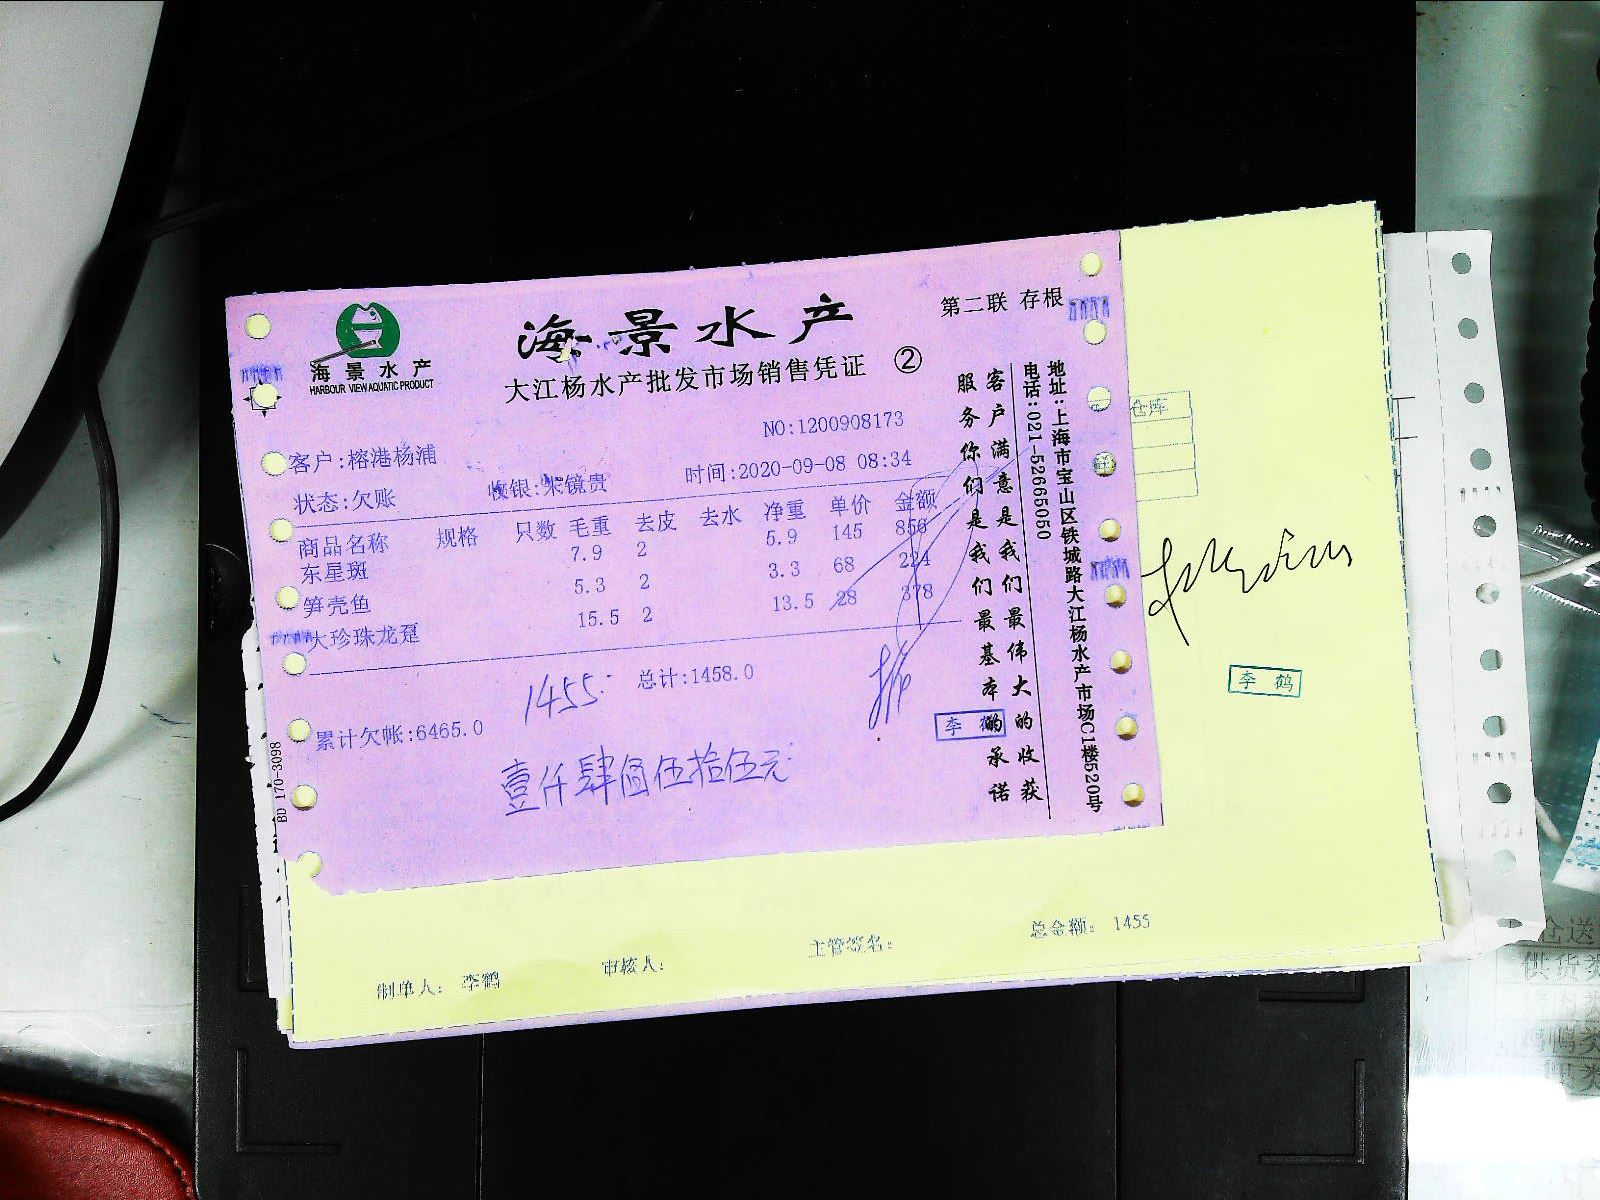 海景水产
HARBOUR VIEW AQUATIC PRODUCT
海景水产
大江杨水产批发市场销售凭证 ②
第二联 存根
NO:1200908173
客户:榕港杨浦
时间:2020-09-08 08:34
状态:欠账
收银:朱镜贵
商品名称 规格 只数 毛重 去皮 去水 净重 单价 金额
东星斑 7.9 2 5.9 145 856
笋壳鱼 5.3 2 3.3 68 224
大珍珠龙趸 15.5 2 13.5 28 378
1455 总计:1458.0
累计欠帐:6465.0
壹仟肆佰伍拾伍元
李鹤
客户满意是我们最伟大的收获
服务你们是我们最基本的承诺
地址:上海市宝山区铁城路大江杨水产市场C1楼520号
电话:021-52665050
BD 170-3098
仓库
李鹤
制单人: 李鹤 审核人: 主管签名: 总金额: 1455
仓送
供货类